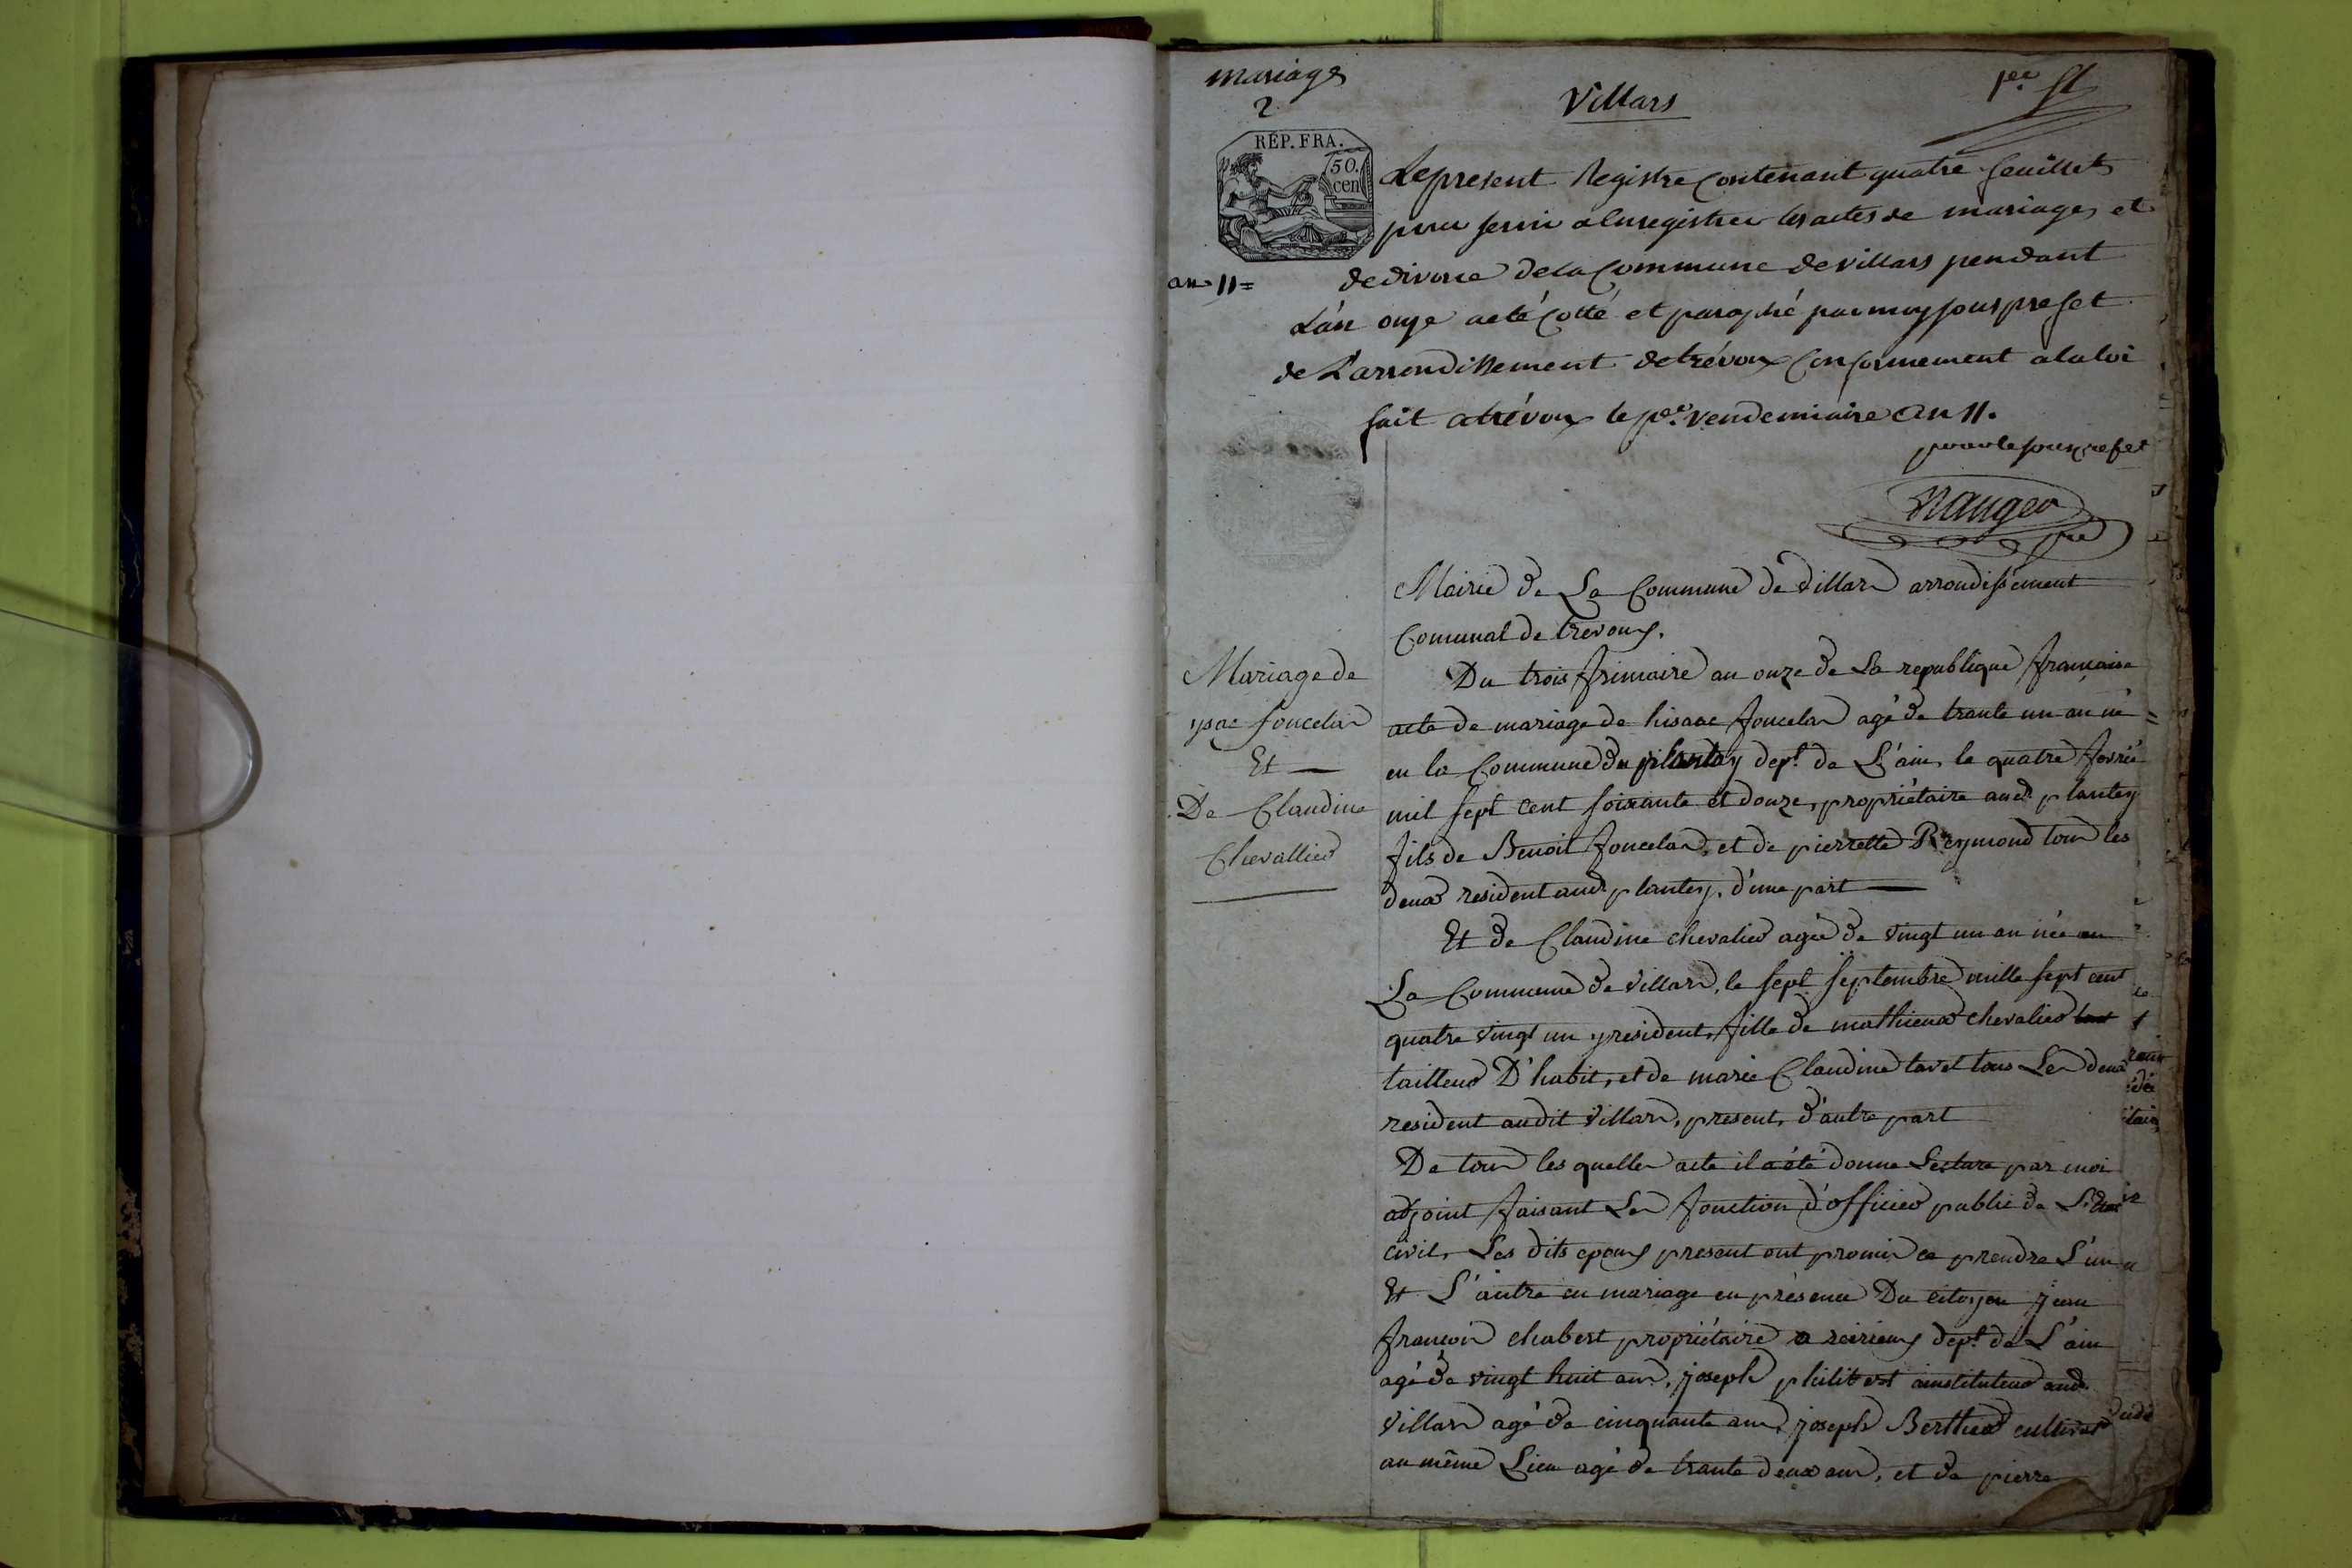 mariages
2
Villars
1er ft
RÉP. FRA.
50.
cen
Le present Registre contenant quatre feuillets
pour servir a Enregistrer les actes de mariages et
de divorce de la Commune de villars pendant
an 11=
L'an onze a eté Cotté et paraphé par moy sous prefet
de L'arrondissement de trévoux Conformement a la loi
fait a trévoux le per. vendemiaire an 11.
pour le sous prefet
Mairie de La Commune de Villars arrondissement
Communal de trevoux.
Mariage de
ysac foncelan
Et
De Claudine
Chevallier
Du trois frimaire an onze de La republique française
acte de mariage de hisaac foncelan agé de trante un an né
en la Commune du plantay dept. de L'ain, le quatre fevrié
mil sept cent soixante et douze, propriétaire aud. plantey
fils de Benoit foncelan, et de pierrette Reymond tous les
deux resident aud. plantey. d'une part
Et de Claudine chevalier agée de vingt un an née en
La Commune de Villars, le sept Septembre mille sept cent
quatre vingt un y resident, fille de mathieux chevalier
tailleur D'habit, et de marie Claudine tavet tous Les deux
resident audit Villars, present, d'autre part
De tous les quelles acte il a été donne Lecture par moi
adjoint faisant Les fonction d'officier public de L'Etat
civil, Les dits epoux present ont promis ce prendre L'un
Et L'autre en mariage en présence Du citoyen jean
françois chabert propriétaire a reirieux dept. de L'ain
agé de vingt huit ans, joseph philibert instituteur aud.
Villars agé de cinquante ans, joseph Berthier cultivatr
au même Lieu agé de trante deux ans, et de pierre